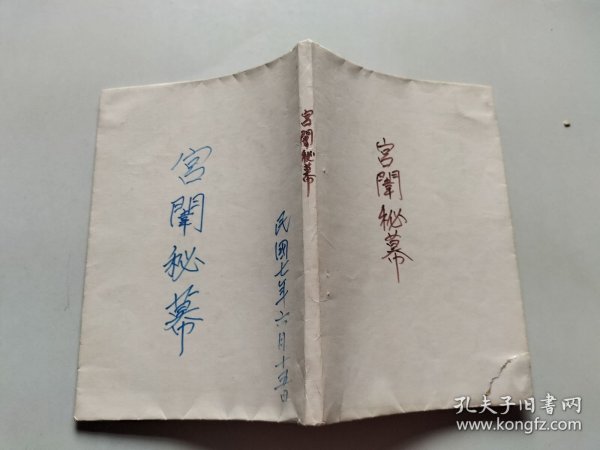 宮闈秘幕
宮闈秘幕
宮闈秘幕
民國七年六月十五日
孔夫子旧书网
www.kongfz.com